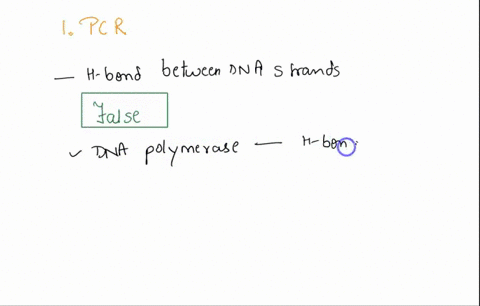 1. PCR
— H-bond between DNA strands
False
✓ DNA polymerase — H-bon